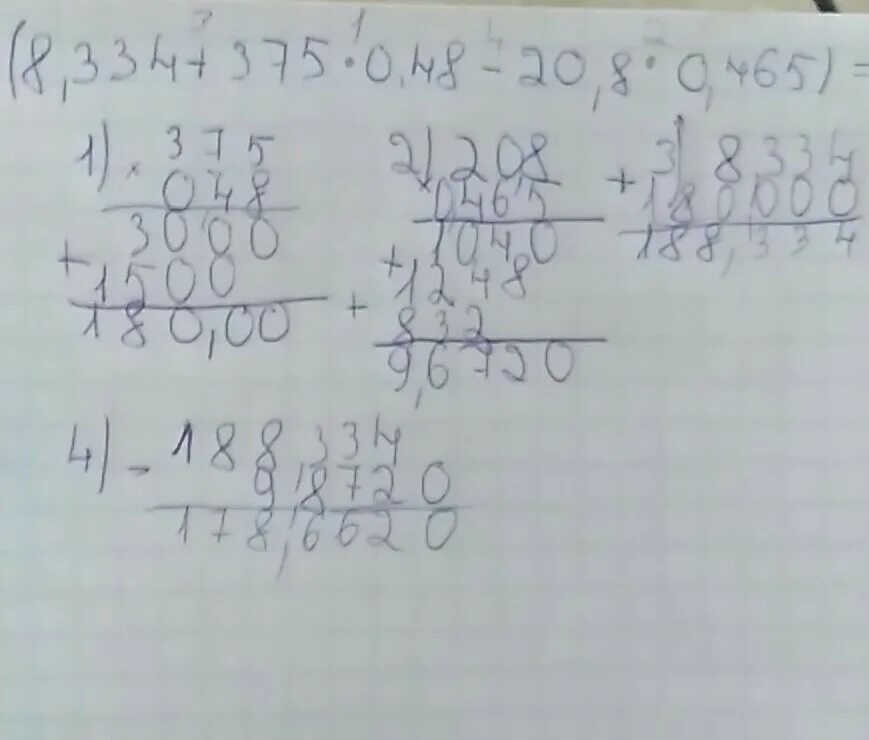 (8,334+375·0,48-20,8·0,465)=
3 1 4 2
1) × 375
048
+ 3000
1500
180,00
2) × 208
0465
+ 1040
+ 1248
832
9,6720
3) + 8334
180000
188,334
4) - 188,334
9,8720
178,6620